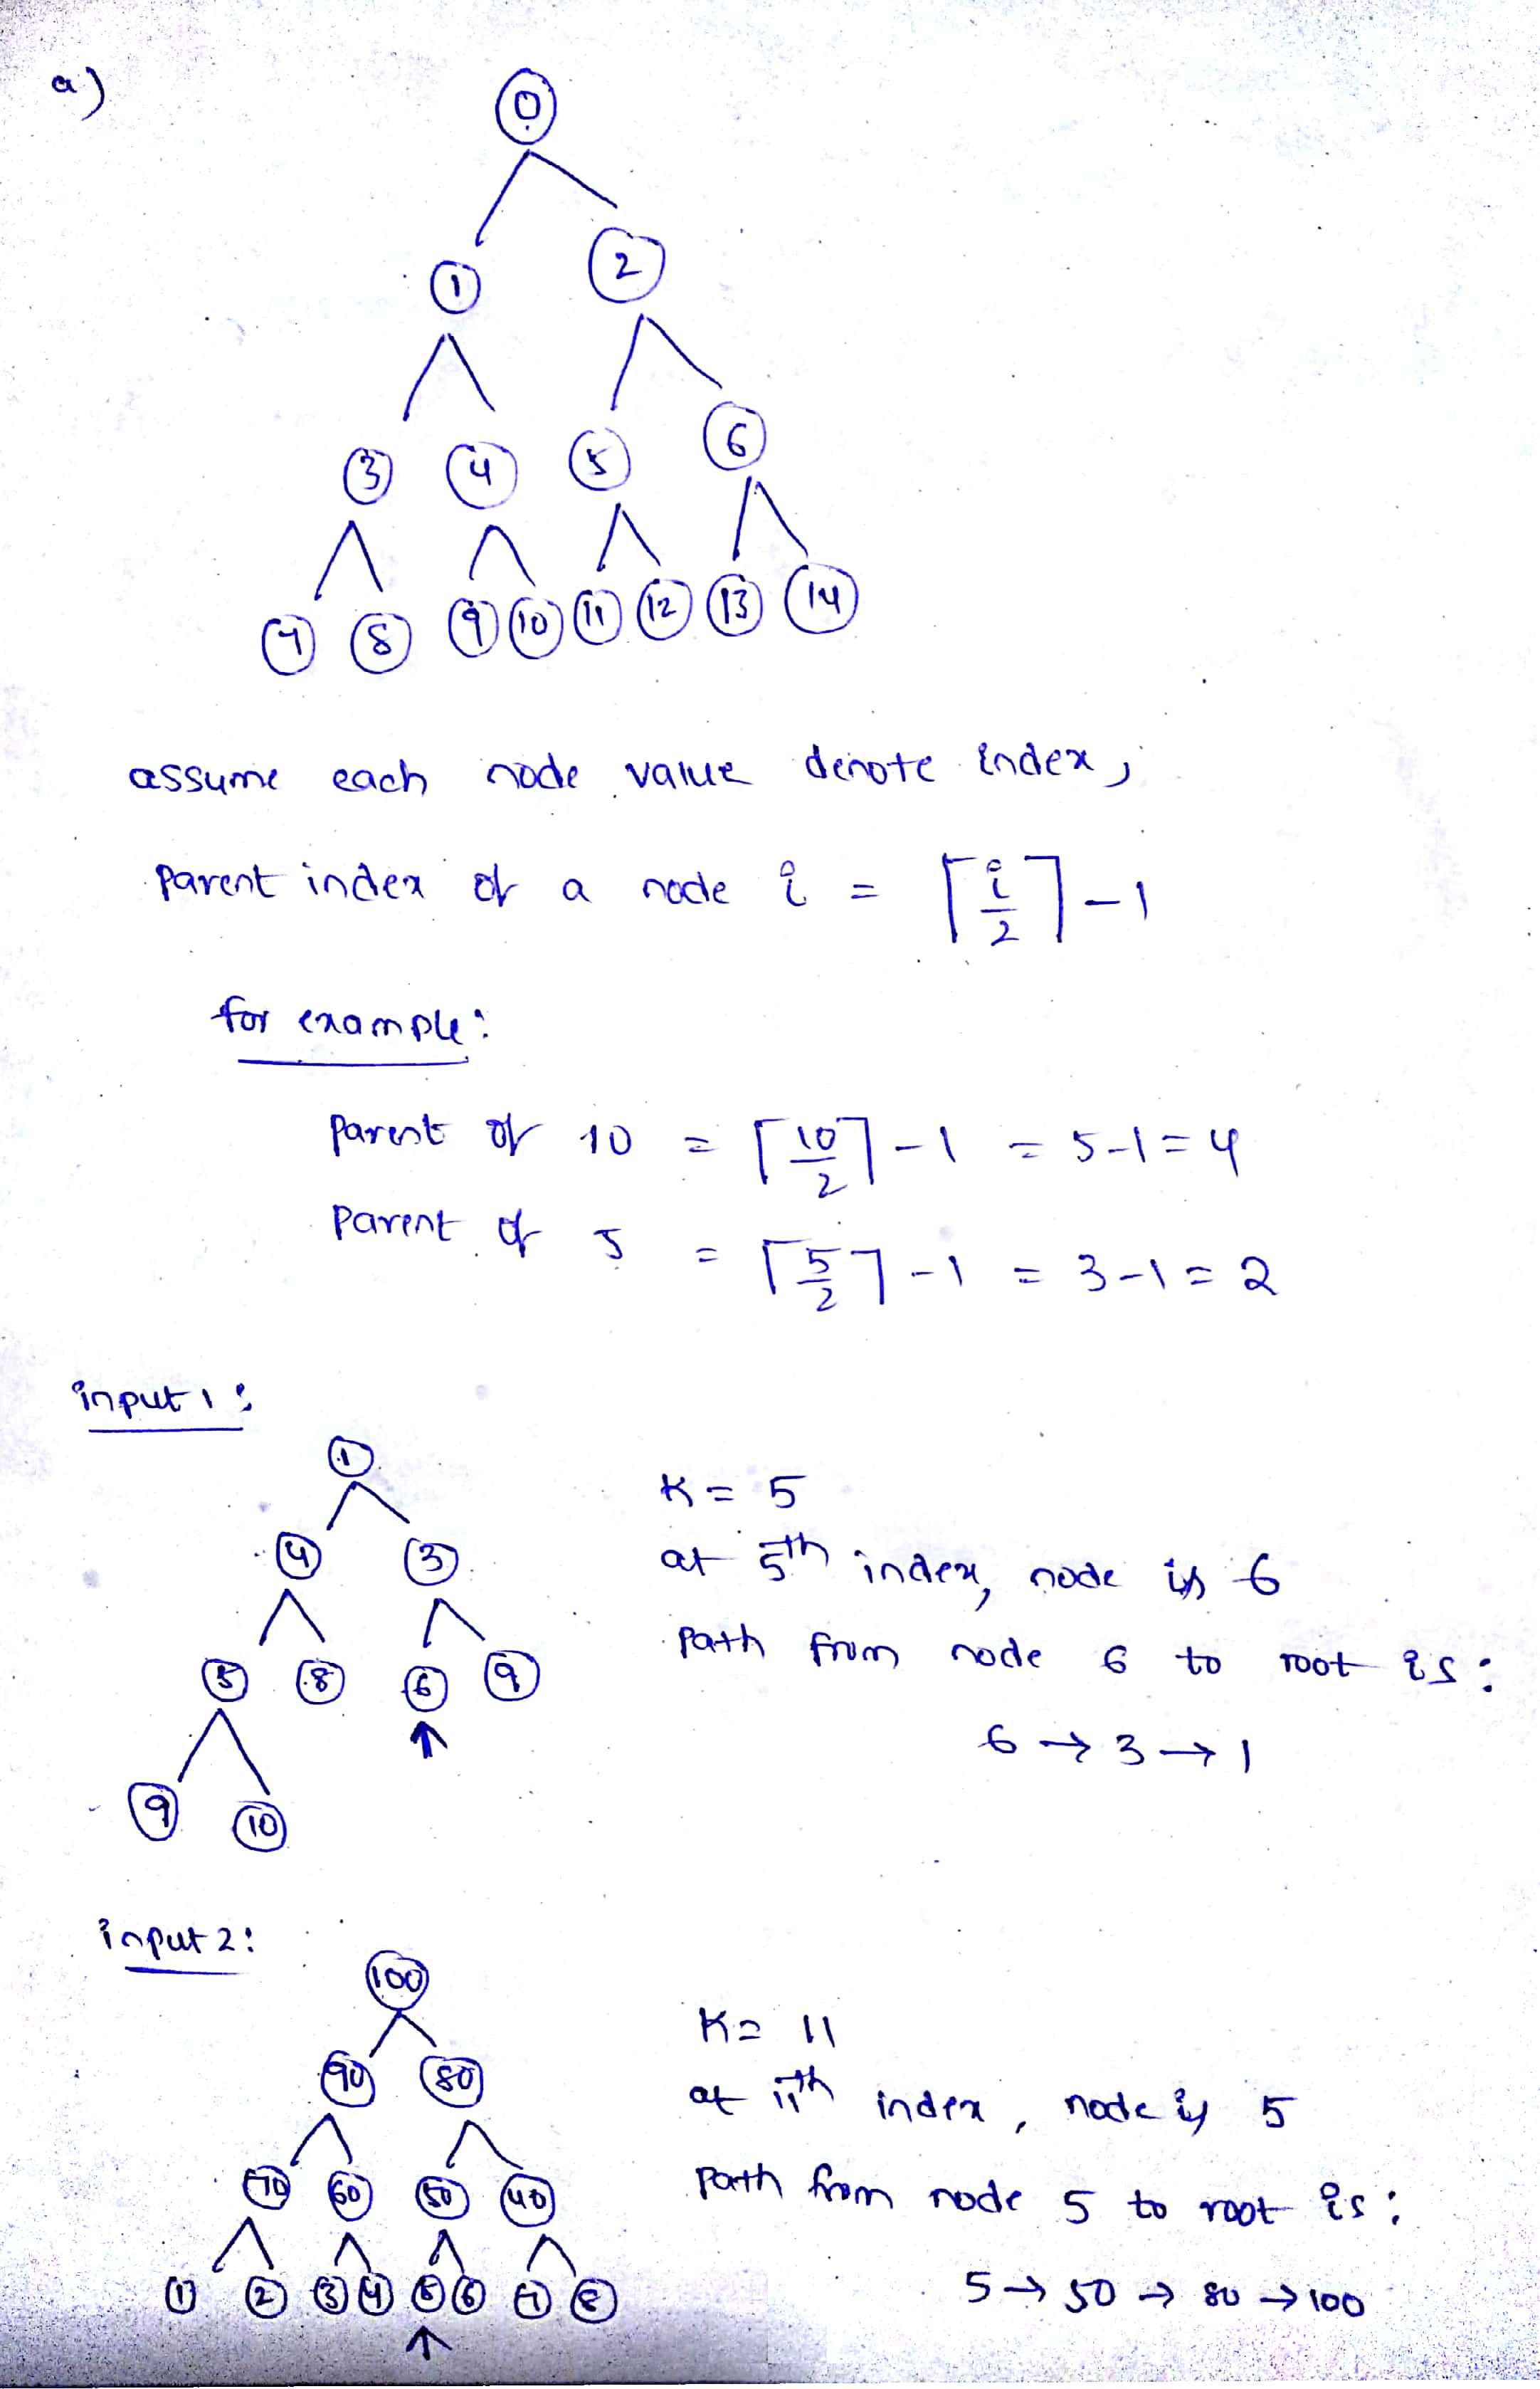 a)
0
1 2
3 4 5 6
7 8 9 10 11 12 13 14
assume each node value denote index,
Parent index of a node i = ⌈i/2⌉-1
for example:
Parent of 10 = ⌈10/2⌉-1 = 5-1=4
Parent of 5 = ⌈5/2⌉-1 = 3-1=2
input 1:
1
4 3
5 8 6 9
9 10
K=5
at 5th index, node is 6
Path from node 6 to root is:
6→3→1
input 2:
100
90 80
70 60 50 40
1 2 3 4 5 6 7 8
K=11
at 11th index, node is 5
Path from node 5 to root is:
5→50→80→100